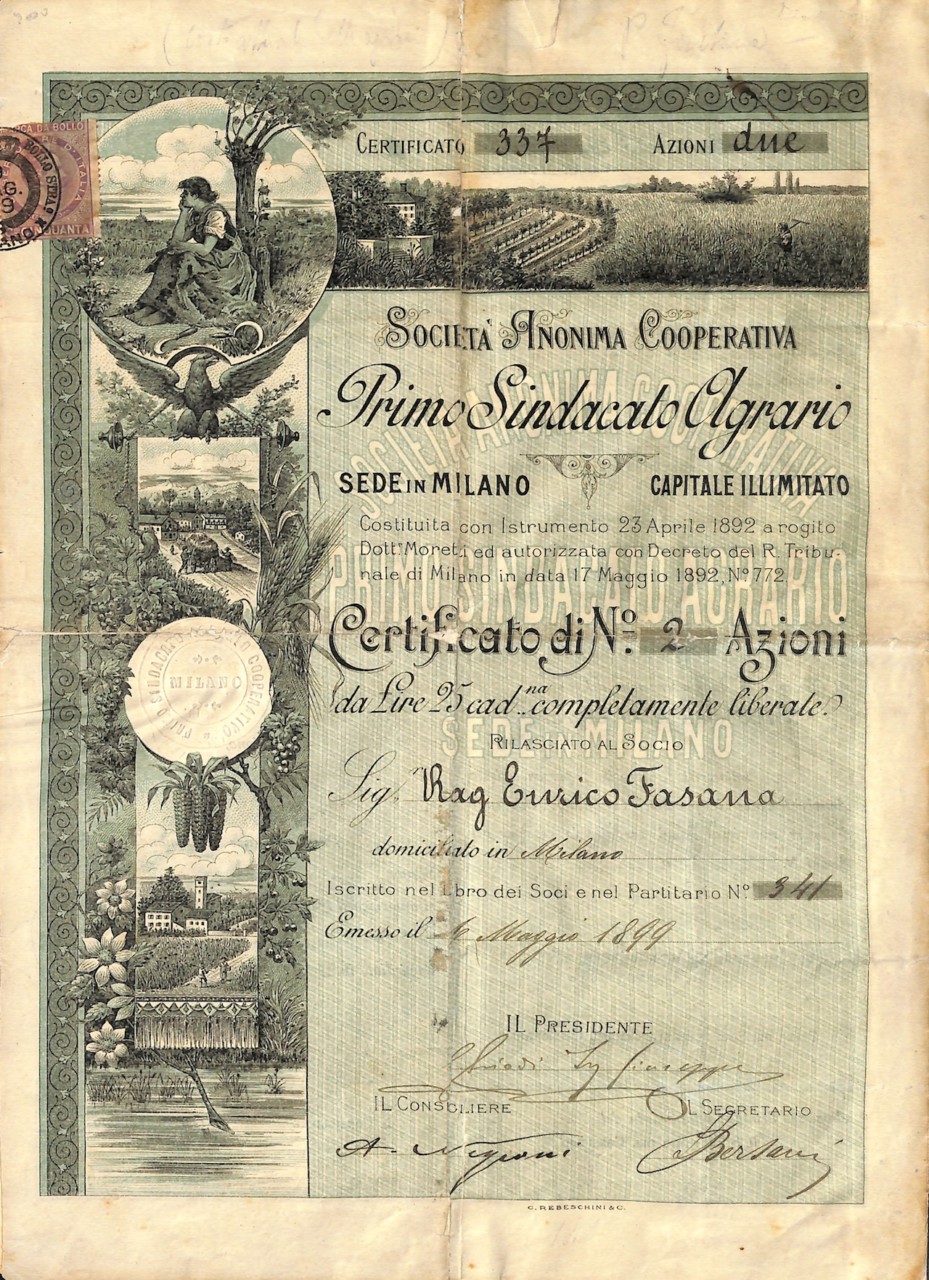 CERTIFICATO 337 AZIONI due
SOCIETÀ ANONIMA COOPERATIVA
Primo Sindacato Agrario
SEDE IN MILANO CAPITALE ILLIMITATO
Costituita con Istrumento 23 Aprile 1892 a rogito
Dott. Moretti ed autorizzata con Decreto del R. Tribu-
nale di Milano in data 17 Maggio 1892, Nº 772
Certificato di Nº 2 Azioni
da Lire 25 cad.na completamente liberate.
RILASCIATO AL SOCIO
Sigr. Rag Enrico Fasana
domiciliato in Milano
Iscritto nel Libro dei Soci e nel Partitario Nº 341
Emesso il Maggio 1899
IL PRESIDENTE
Giuseppe
IL CONSIGLIERE IL SEGRETARIO
A. Negroni Bersani
G. REBESCHINI & C.
SOCIETÀ ANONIMA COOPERATIVA
PRIMO SINDACATO AGRARIO
SEDE IN MILANO
MILANO
COOPERATIVO
DA BOLLO